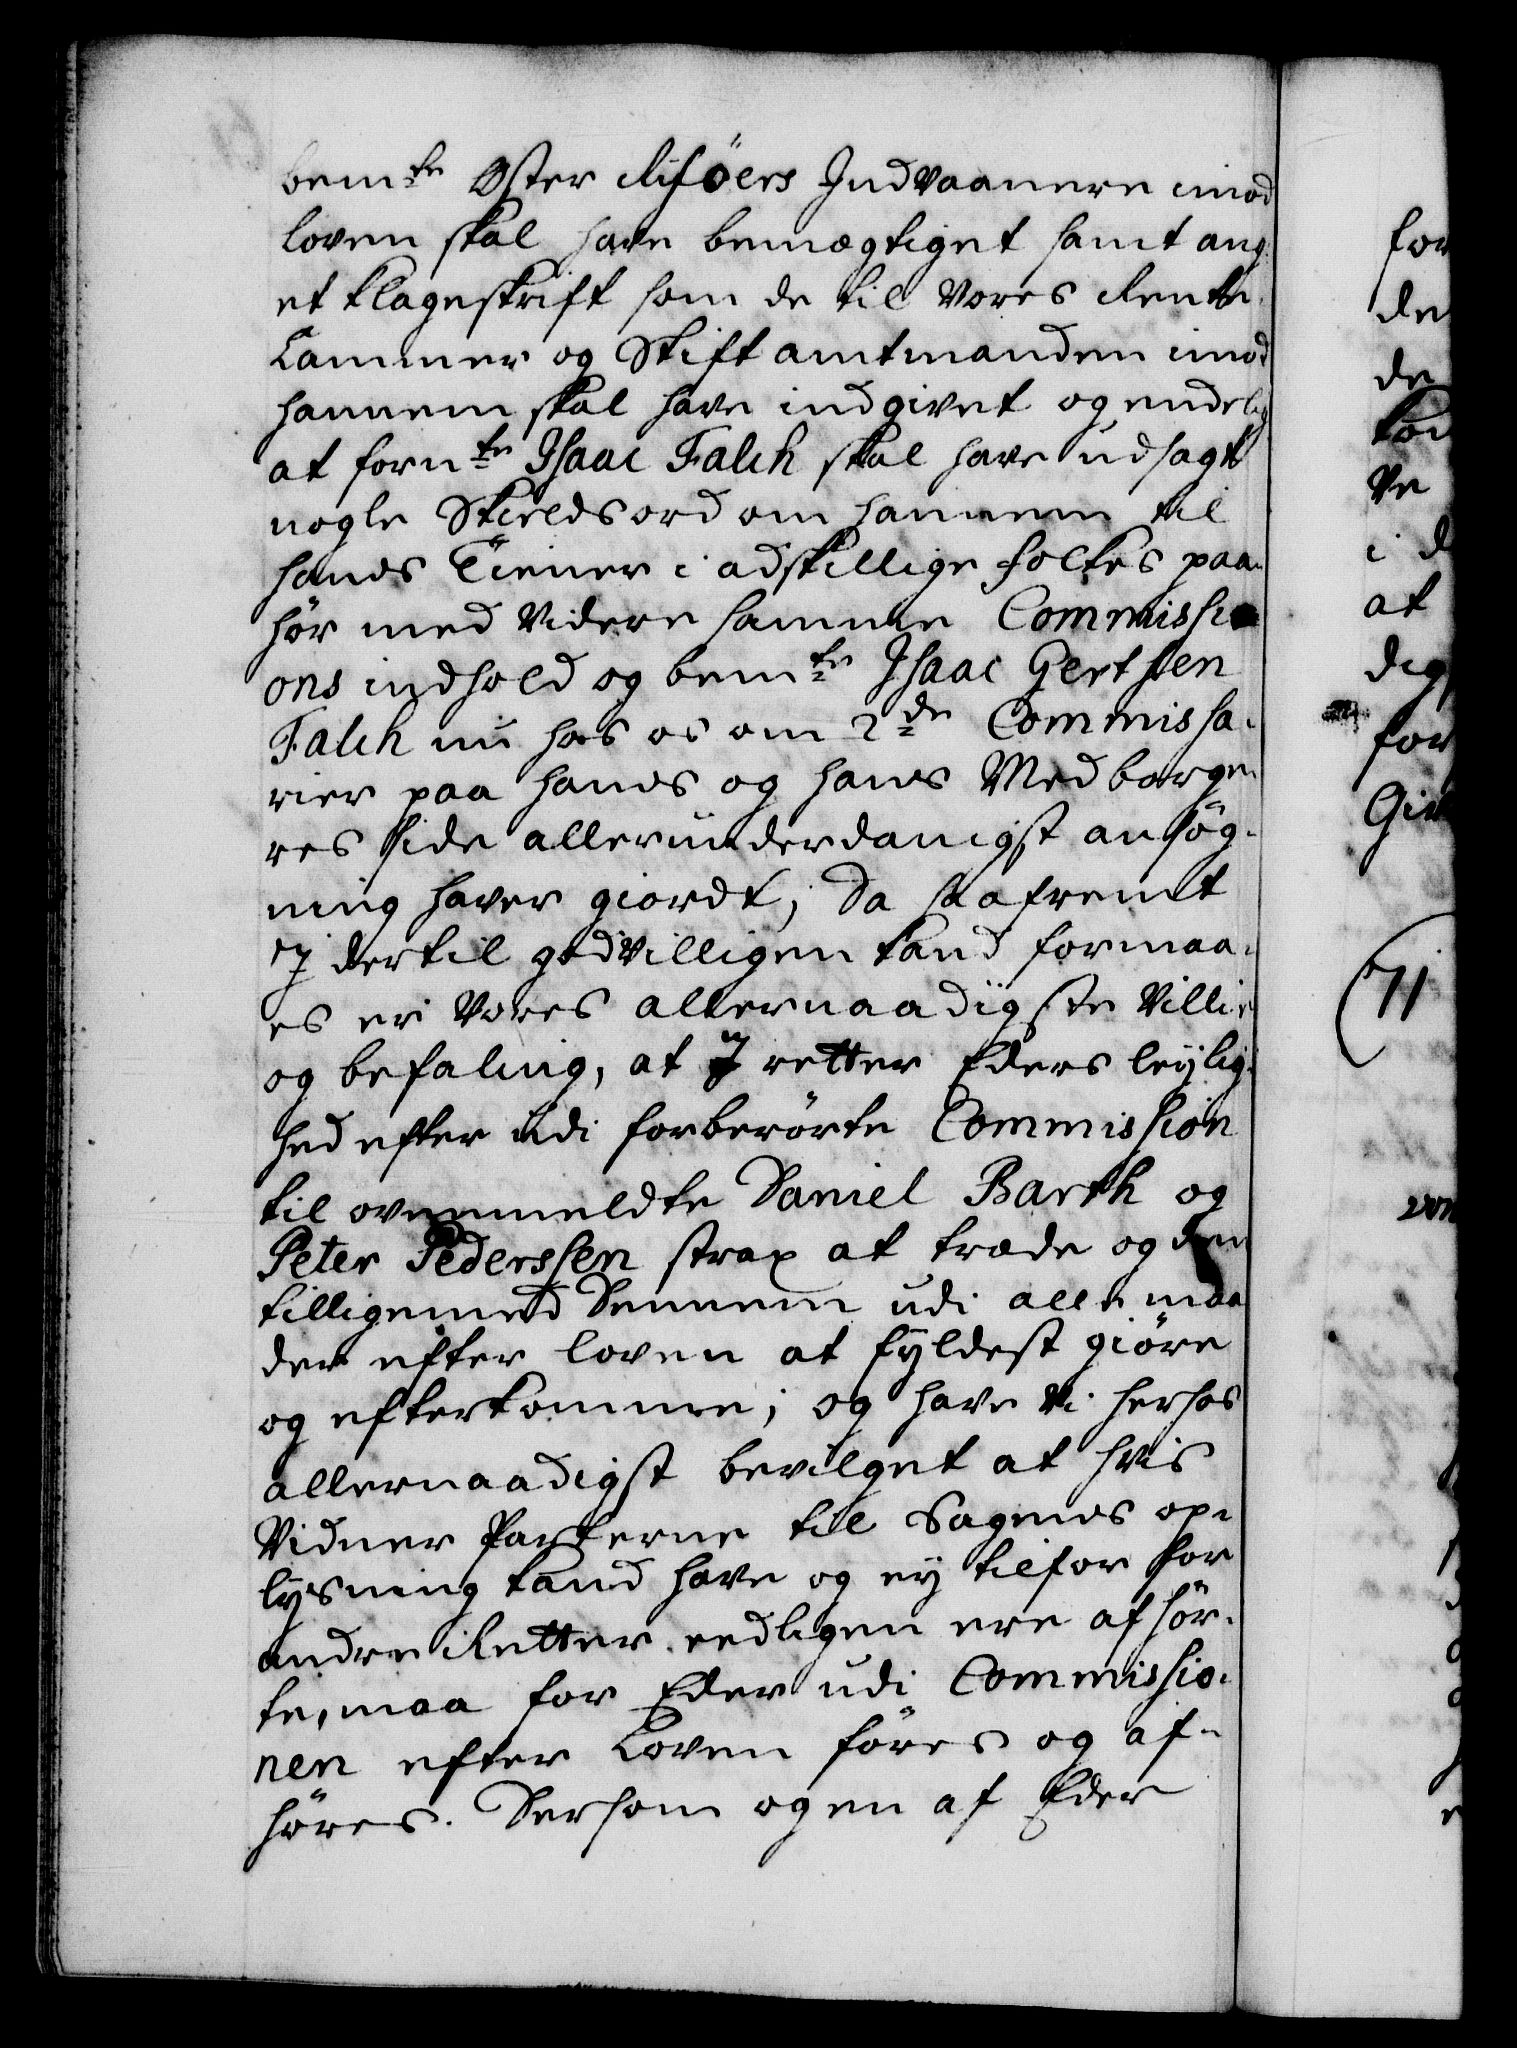 bemte Øster Risöers Indvaanere imod
loven skal have bemægtiget samt ang:
et klageskrift som de til Vores Rente
Cammer og Stiftamtmanden imod
hannem skal have indgivet og endelig
at fornte Isaac Falch skal have udsagt
nogle Skieldsord om hannem til
hands Tiener i adskillige folkes paa-
hör med Videre samme Commissi-
ons indhold og bemte Isaac Gertsen
Falch nu hos os om 2de Commissa-
rier paa hands og hans Medborge-
res side allerunderdanigst ansög-
ning haver giordt; Da saafremt
I dertil godvilligen kand formaa-
es er Vores allernaadigste Villie
og befaling, at I retter Eders leylig-
hed efter udi forberörte Commission
til ovenmeldte Daniel Barth og
Peter Pederssen strax at træde og den
tilligemed Dennem udi alle maa
der efter loven at fyldest giöre
og efterkomme; og have Vi herhos
allernaadigst bevilget at hvis
Vidner Parterne til Sagens op-
lysning kand have og ey tilfor for
andre Retter eedligen ere afhör-
te, maa for Eder udi Commissio-
nen efter Loven föres og af-
höres. Dersom ogen af Eder
for
de
de
at
for
(71